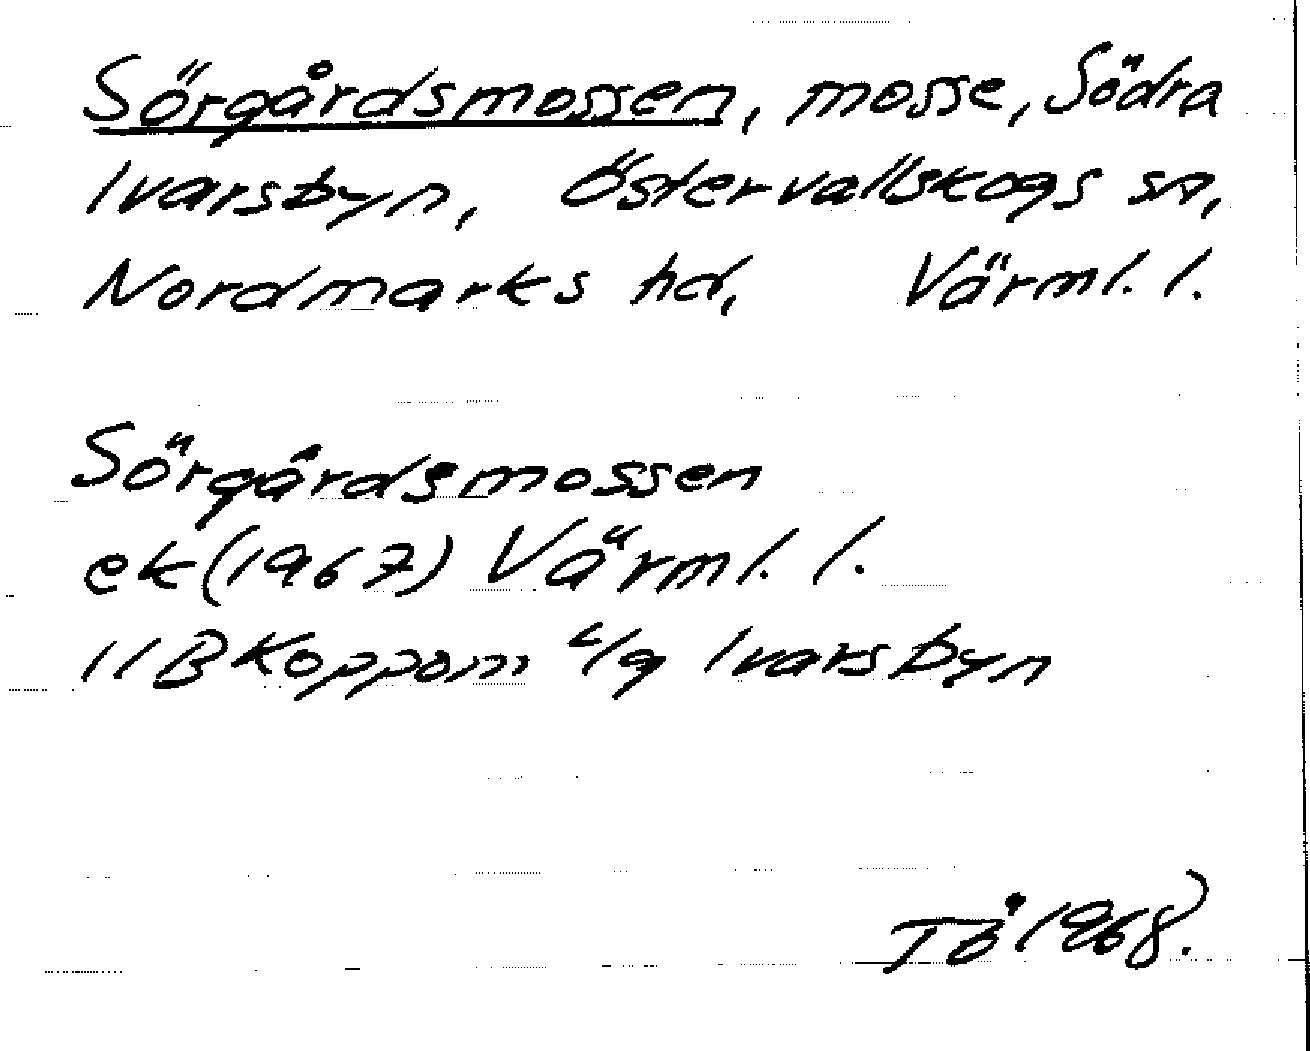 Sörgårdsmossen, mosse, Södra
Ivarsbyn, Östervallskogs sn,
Nordmarks hd, Värml. l.
Sörgårdsmossen
ek (1967) Värml. l.
11B Koppom c/g Ivarsbyn
TÅ 1968.